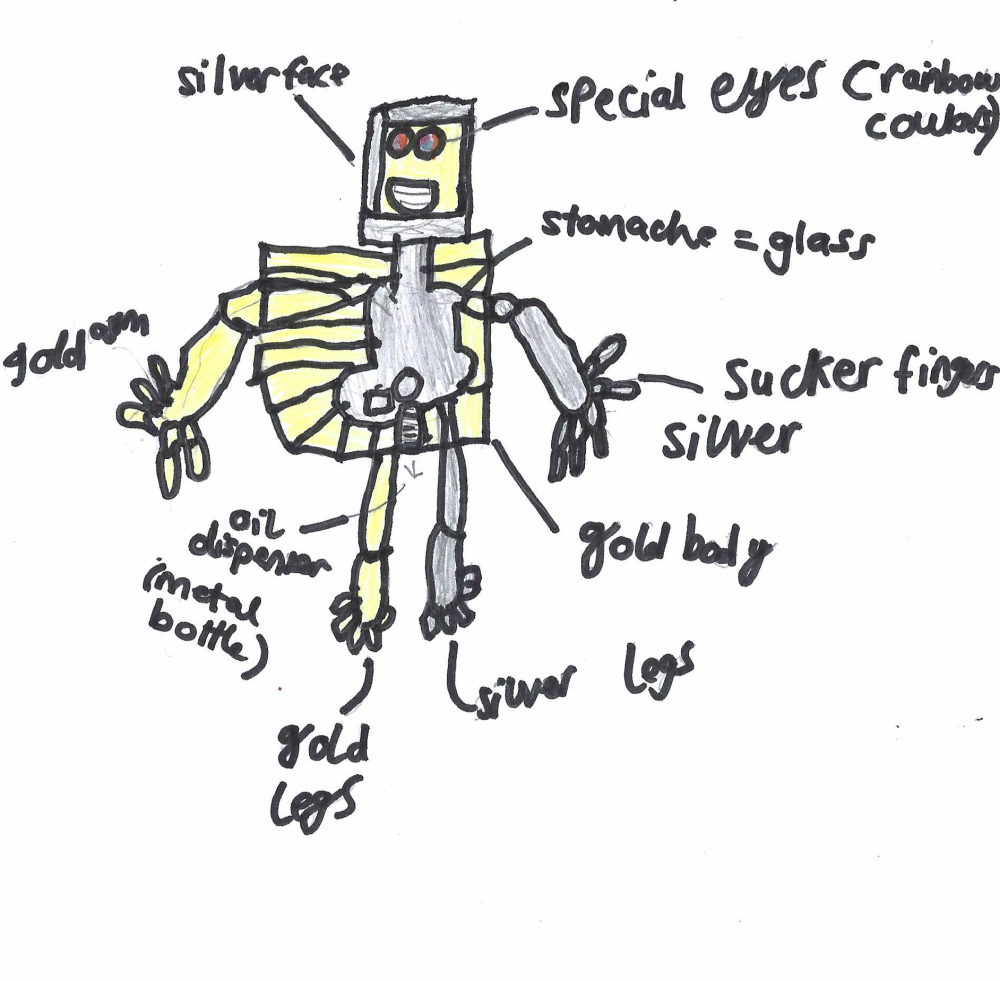 silver face
special eyes (rainbow
coulars)
stomache = glass
gold arm
sucker fingers
silver
oil
dispenser
(metal
bottle)
gold body
gold
legs
silver legs